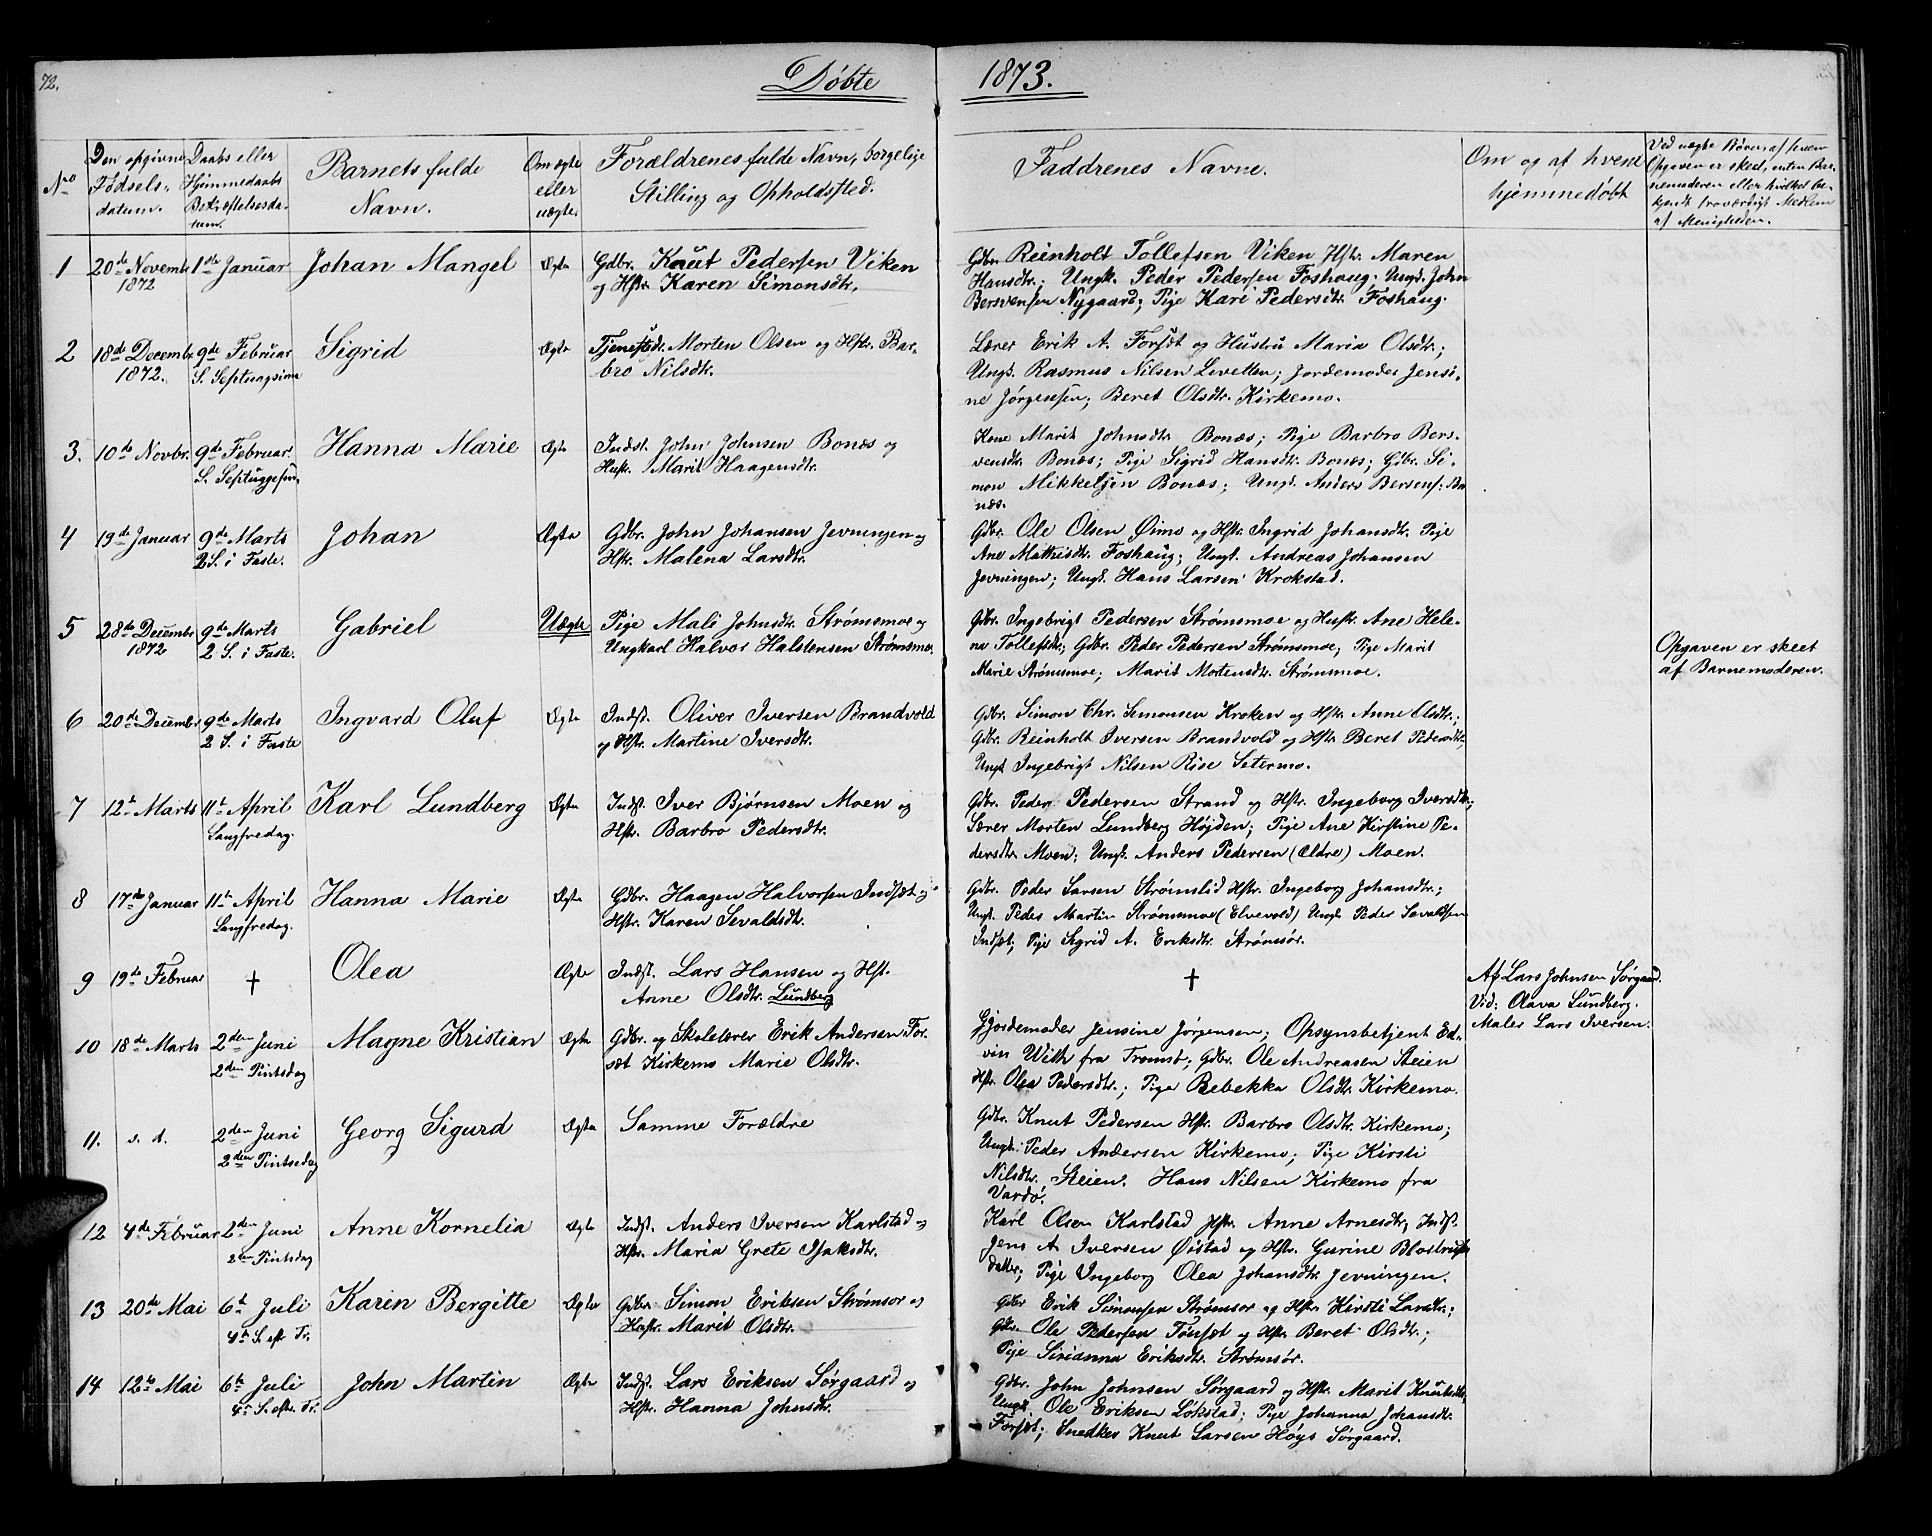 72.
Døbte 1873.
No
Den opgivne Fødsels-datum.
Daabs eller Hjemmedaabs Bekræftelsesdatum.
Barnets fulde Navn.
Om ægte eller uægte.
Forældrenes fulde Navn, borgelige Stilling og Opholdssted.
Faddrenes Navne.
Om og af hvem hjemmedøbt
Ved uægte Børn af hvem Opgaven er skeet, enten Barnemoderen eller hvilket bekjendt troværdigt Medlem af Menigheden.
1 20de Novembr 1ste Januar Johan Mangel Ægte Gdbr. Knut Pedersen Viken
1872 og Hstr. Karen Simonsdtr.
Gdbr. Reinholt Tollefsen Viken Hstr. Maren
Hansdtr.; Ungk. Peder Pedersen Foshaug. Ungk. John
Bersvensen Nygaard; Pige Kari Pedersdtr. Foshaug.
2 18de Decembr. 9de Februar Sigrid Ægte Tjenestedr. Morten Olsen og Hstr. Bar-
1872. S. Septuagsima bro Nilsdtr.
Lærer Erik A. Forsæt og Hustru Maria Olsdtr.;
Ungk. Rasmus Nilsen Levetten; Jordemoder Jensi-
ne Jørgensen; Beret Olsdtr. Kirkemo.
3. 10de Novbr. 9de Februar. Hanna Marie Ægte Indst. John Johnsen Bonæs og
S. Septuggesm. Hustr. Marit Haagensdtr.
Kone Marit Johnsdtr. Bonæs; Pige Barbro Bers-
vensdtr. Bonæs; Pige Sigrid Hansdtr. Bonæs; Gdbr. Si-
mon Mikkelsen Bonæs; Ungk. Anders Bersens: Bo
næs.
4 19de Januar 9de Marts Johan Ægte Gdbr. John Johansen Jevningen og
2 S. i Faste. Hstr. Malena Larsdtr.
Gdbr. Ole Olsen Øimo og Hstr. Ingrid Johansdtr. Pige
Ane Mathisdtr. Foshaug; Ungk. Andreas Johansen
Jevningen; Ungk. Hans Larsen Krokstad.
5 28de Decembr 9de Marts Gabriel Uægte Pige Mali Johnsdtr. Strømsmoe og
1872 2 S. i Faste. Ungkarl Halvor Halstensen Strømsmo.
Gdbr. Ingebrigt Pedersen Strømsmoe og Hustr. Ane Hele-
na Tollefsdtr.; Gdbr. Peder Pedersen Strømsmoe; Pige Marit
Marie Strømsmoe; Marit Mortensdtr. Strømsmoe.
Opgaven er skeet
af Barnemoderen.
6 20de Decembr 9de Marts Ingvard Oluf Ægte Indst. Oliver Iversen Brandvold
2 S. i Faste og Hstr. Martine Iversdtr.
Gdbr. Simon Chr. Simonsen Kroken og Hstr. Anne Olsdtr.;
Gdbr. Reinholt Iversen Brandvold og Hstr. Beret Pedersdtr.
Ungk Ingebrigt Nilsen Rise Setermo.
7 12te Marts 11te April Karl Lundberg Ægte Indst. Iver Bjørnsen Moen og
Langfredag. Hstr. Barbro Pedersdtr.
Gdbr. Peder Pedersen Strand og Hstr. Ingeborg Iversdtr.;
Lærer Morten Lundberg Højden; Pige Ane Kirstine Pe-
dersdtr. Moen; Ungk. Anders Pedersen (Ældre) Moen.
8 17de Januar 11te April Hanna Marie Ægte Gdbr. Haagen Halvorsen Indset og
Langfredag. Hstr. Karen Sevaldsdtr.
Gdbr. Peder Larsen Strømslid Hstr. Ingeborg Johansdtr.;
Ungk. Peder Martin Strømsmoe (Elvevold) Ungk Peder Sevaldsen
Indset; Pige Sigrid A. Eriksdtr. Strømsør.
9 19de Februar † Olea Ægte Indst. Lars Hansen og Hst.
Anne Olsdtr. Lundberg
†
Af Lars Johnsen Sørgaard.
Vid: Olava Lundberg.
Maler Lars Iversen.
10 18de Marts 2den Juni Magne Kristian Ægte Gdbr. og Skolelærer Erik Andersen For-
2den Pintsdag sæt Kirkemo Marie Olsdtr.
Gjordemoder Jensine Jørgensen; Opsynsbetjent Ed-
vin With fra Tromsø; Gdbr. Ole Andreasen Steien
Hstr. Olea Pedersdtr.; Pige Rebekka Olsdtr. Kirkemo.
11. s. d. 2den Juni Georg Sigurd Ægte Samme Forældre
2den Pintsedag
Gdbr. Knut Pedersen Hstr. Barbro Olsdtr. Kirkemo;
Ungk. Peder Andersen Kirkemo; Pige Kirsti
Nilsdtr. Steien. Hans Nilsen Kirkemo fra
Vardø.
12 4de Februar 2den Juni Anne Kornelia Ægte Indst. Anders Iversen Karlstad og
2den Pintsdag Hstr. Maria Grete Isaksdtr.
Karl Olsen Karlstad Hstr. Anne Arnesdtr; Indst.
Jens A. Iversen Øistad og Hstr. Gurine
datter; Pige Ingeborg Olea Johansdtr. Jevningen.
13 20de Mai 6te Juli Karen Bergitte Ægte Gdbr. Simon Eriksen Strømsor og
4de S. eftr Tr. Hustr. Marit Olsdtr.
Gdbr Erik Simonsen Strømsor og Hstr. Kirsti Larsdtr.;
Gdbr. Ole Pedersen Tønset og Hstr. Beret Olsdtr.;
Pige Sirianna Eriksdtr. Strømsør.
14 12te Mai 6te Juli John Martin Ægte Indst. Lars Eriksen Sørgaard og
4de S. eftr. Tr. Hstr. Hanna Johnsdtr.
Gdbr. John Johnsen Sørgaard og Hstr. Marit Knutsdtr.
Ungk. Ole Eriksen Løkstad; Pige Johanna Johansdtr.
Forsæt; Snedker Knut Larsen Høys Sørgaard.